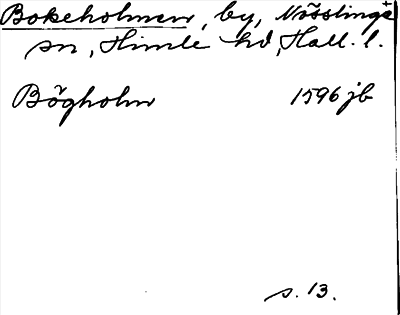 Bokeholmen, by, Nösslinge
sn, Himle hd, Hall. l.
Bögholm 1596 jb
s. 13.